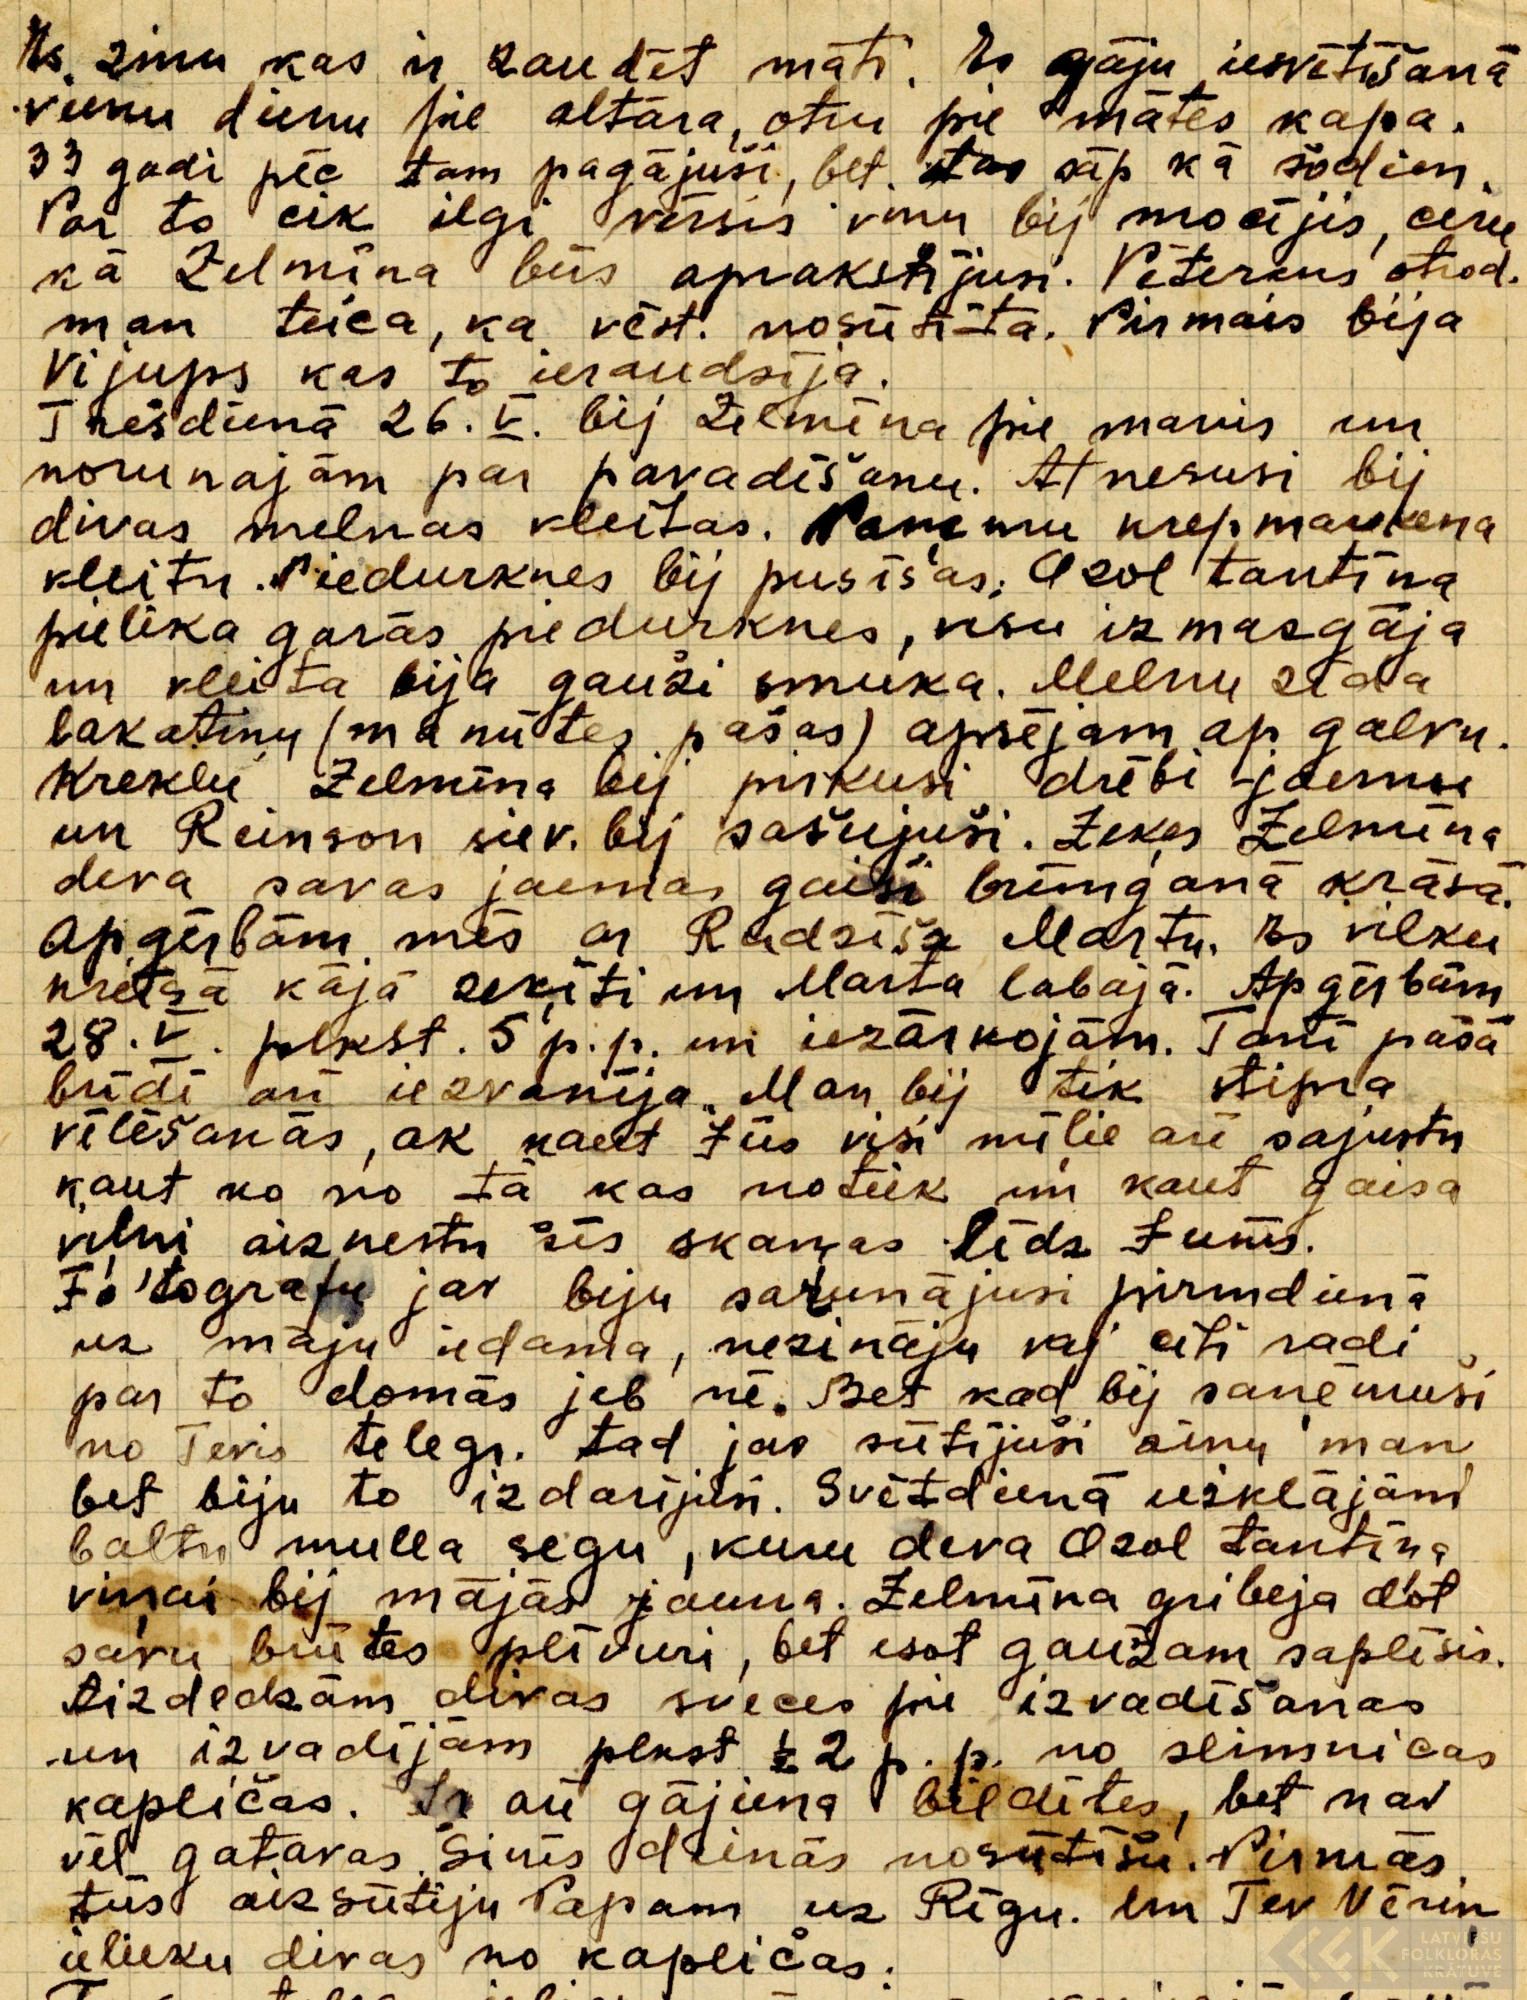 Es zinu kas ir zaudēt māti. Es gāju iesvētīšanā
vienu dienu pie altāra, otru pie mātes kapa.
33 gadi pēc tam pagājuši, bet tas sāp kā šodien.
Par to cik ilgi vērsis viņu bij mocījis, ceru
kā Zelmiņa būs aprakstījusi. Pēterens otrod.
man teica, ka vēst. nosūtīta. Pirmais bija
Vijups kas to ieraudzīja.
Trešdienā 26. V. bij Zelmiņa pie manis un
norunajām par pavadīšanu. Atnesusi bij
divas melnas kleitas. Paņēmu krepmarokena
kleitu. Piedurknes bij pusīsas. Ozol tantiņa
pielika garās piedurknes, visu izmazgāja
un kleita bija gauži smuka. Melnu zīda
lakatiņu (manītes pašas) apsējam ap galvu.
Kreklu Zelmiņa bij pirkusi drēbi jaunu
un Reinson siev. bij sašujuši. Zeķes Zelmiņa
deva savas jaunas gaiši brūnganā krāsā.
Apģērbām mēs ar Rudzīša Martu. Es vilku
kreisā kājā zeķīti un Marta labajā. Apģērbām
28. V. plkst. 5 p.p. un iezārkojām. Tanī pašā
brīdī arī iezvanīja. Man bij tik stipra
vēlēšanās, ak kaut Jūs visi mīļie arī sajustu
kaut ko no tā kas notiek un kaut gaisa
viļņi aiznestu šīs skaņas līdz Jums.
Fo'tografu jav biju sarunājusi pirmdienā
uz māju iedama, nezināju vaj citi radi
par to domās jeb nē. Bet kad bij saņēmuši
no Tevis telegr. tad jav sūtījuši ziņu man
bet biju to izdarījusi. Svētdienā uzklājām
baltu mulla segu, kuru deva Ozol tantiņa
viņai bij mājās jauna. Zelmiņa gribēja dot
savu brūtes plīvuri, bet esot gaužam saplīsis.
Aizdedzām divas sveces pie izvadīšanas
un izvadījām plkst 2 p.p. no slimnicas
kapličas. Ir arī gājiena bildītes, bet nav
vēl gatavas. Šinīs dienās nosūtīšu. Pirmās
tūs aizsūtīju Papam uz Rīgu. Un Tev Vēriņ
ielieku divas no kapličas.
LATVIEŠU
FOLKLORAS
KRĀTUVE